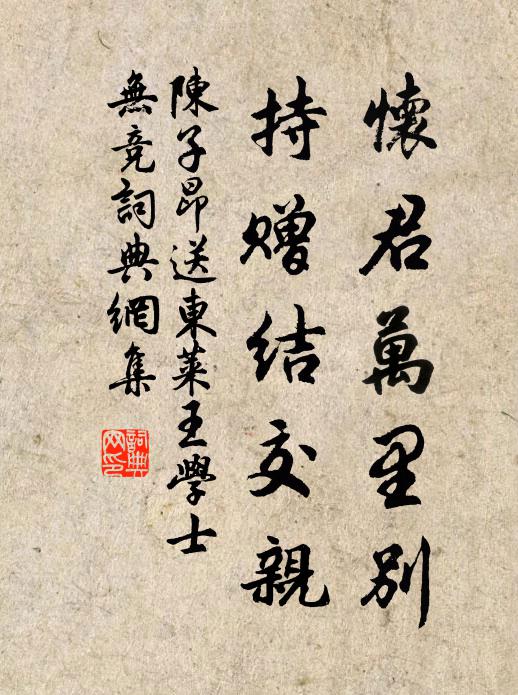 懷君萬里別
持贈結交親
陳子昂送東萊王學士
無竞詞典網集
詞典
网印